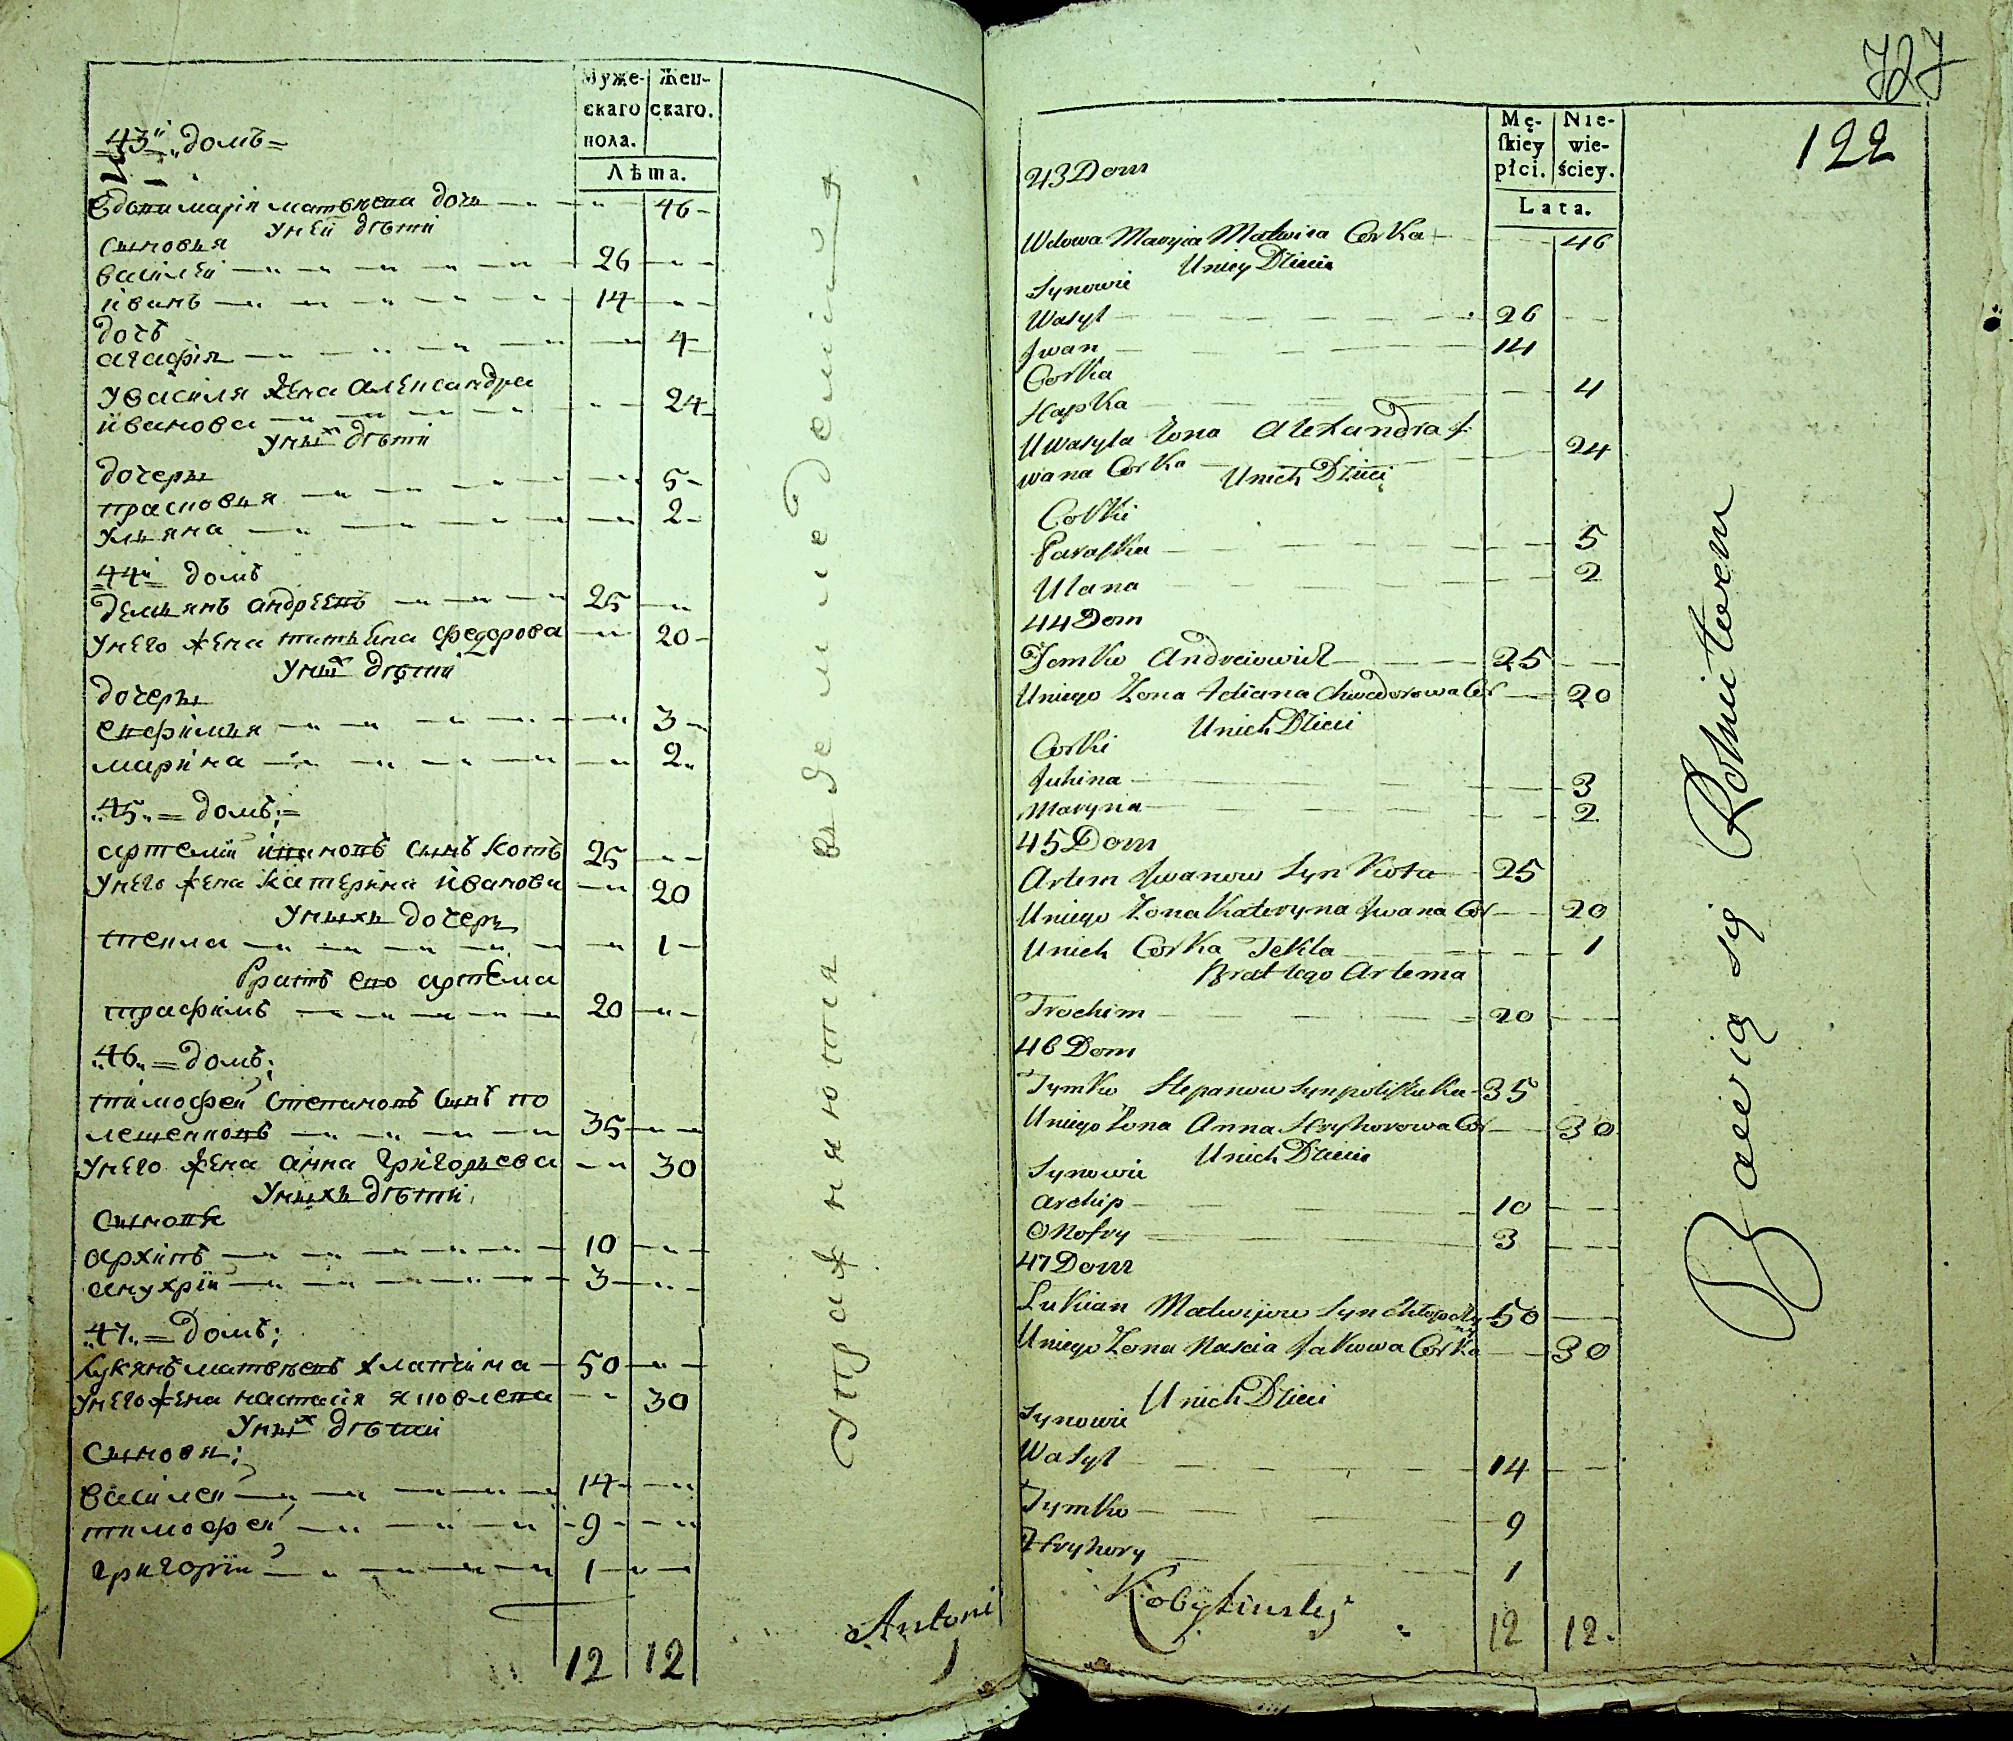 Муже-
скаго
пола.
Жен-
скаго.
Лѣта.
43й домъ
Вдова марія матвеева дочь 46
У ней дѣти
сыновья
василеи 26
иванъ 14
дочь
агафія 4
У василя жена александра
иванова 24
У ных дѣти
дочеры
прасковья 5
ульяна 2
44й домъ
демьянъ андреевъ 25
У него жена татьяна федорова 20
У ных дѣти
дочеры
ефимья 3
марина 2
45 домъ;
артемий ивановъ сынъ котъ 25
У него жена катерина иванова 20
У ныхъ дочеръ
текла 1
Братъ его артема
трафимъ 20
46 домъ;
тимофей степановъ сынъ по
лещенковъ 35
У него жена анна григорьева 30
У ныхъ дѣти
Сыновя
архипъ 10
анухрій 3
47 домъ;
лукянъ матвеевъ 50
У него жена настасія яковлева 30
У ных дѣти
Сыновя;
василей 14
тимофей 9
григорій 1
12 12
упражняются в земледелии
Antoni
727
122
Mę-
skiey
płci.
Nie-
wie-
ściey.
Lata.
43 Dom
Wdowa Maryia Matwiia Corka 46
U niey Dzieci
Synowie
Wasyl 26
Jwan 14
Corka
Hapka 4
U Wasyla Zona Alexandra J
wana Corka 24
U nich Dzieci
Corki
Paraska 5
Ulana 2
44 Dom
Demko Andreiowicz 25
U niego Zona Tatiana Chwedorowa Cor 20
U nich Dzieci
Corki
Juhina 3
Maryna 2
45 Dom
Artem Jwanow Syn Kota 25
U niego Zona Kateryna Jwana Cor 20
U nich Corka Tekla 1
Brat iego Artema
Trochim 20
46 Dom
Tymko Stepanow Syn 35
U niego Zona Anna Hryhorowa Cor 30
U nich Dzieci
Synowie
Archip 10
Onofry 3
47 Dom
Lukian Matwijow Syn 50
U niego Zona Nascia Jakowa Corka 30
U nich Dzieci
Synowie
Wasyl 14
Tymko 9
Hryhory 1
Kobylinsky
12 12.
Bawią się Rolnictwem